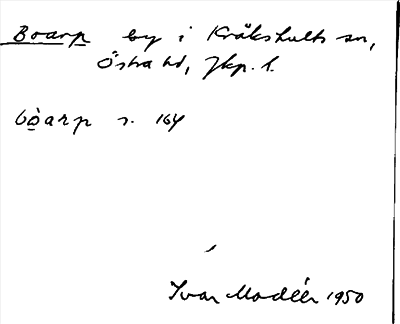 Boarp by i Kråkshults sn,
Östra hd, Jkp. l.
bòarp s. 164
Ivar Modéer 1950